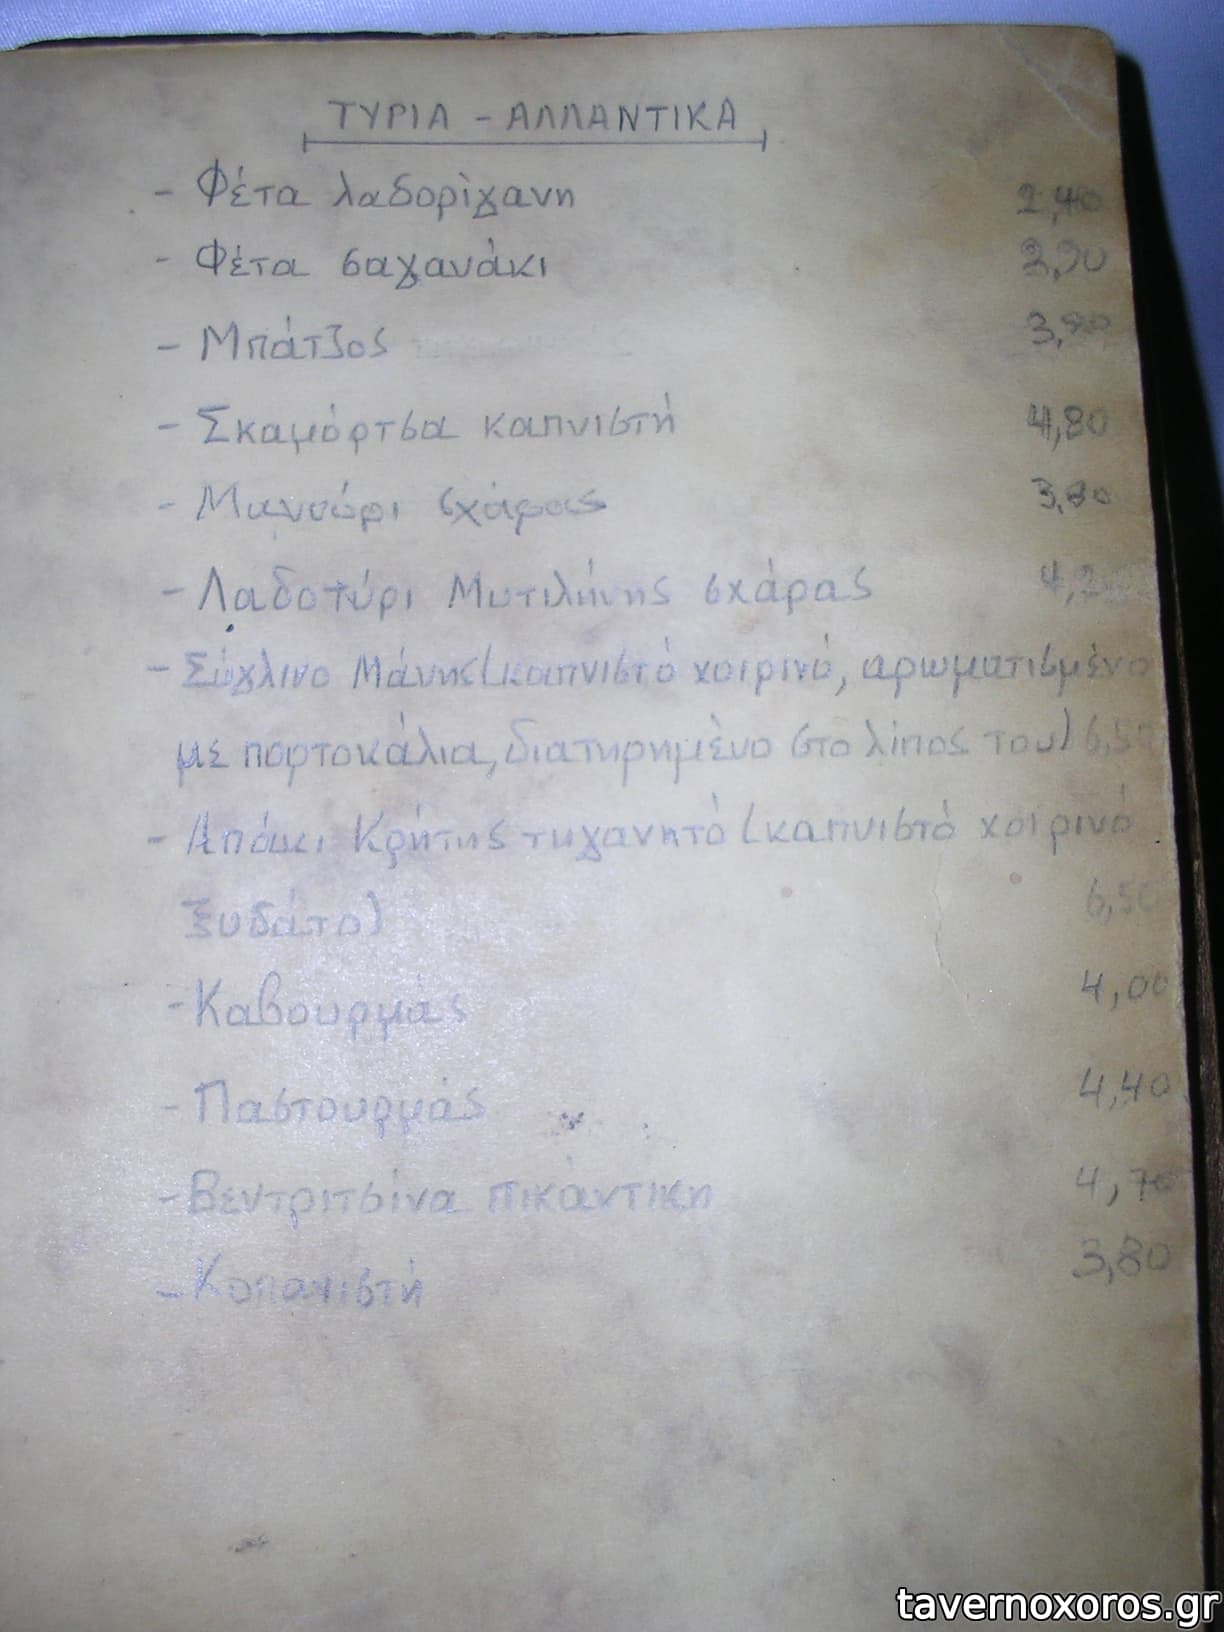 ΤΥΡΙΑ - ΑΛΛΑΝΤΙΚΑ
- Φέτα λαδορίγανη 2,40
- Φέτα σαγανάκι
- Μπάτζος 3,90
- Σκαμόρτσα καπνιστή 4,80
- Μανούρι σχάρας 3,80
- Λαδοτύρι Μυτιλήνης σχάρας
- Σύγλινο Μάνης (καπνιστό χοιρινό, αρωματισμένο
με πορτοκάλια, διατηρημένο στο λίπος του) 6,50
- Απάκι Κρήτης τηγανητό (καπνιστό χοιρινό
ξυδάτο) 6,50
- Καβουρμάς 4,00
- Παστουρμάς 4,40
- Βεντριτσίνα πικάντικη 4,70
- Κοπανιστή 3,80
tavernoxoros.gr